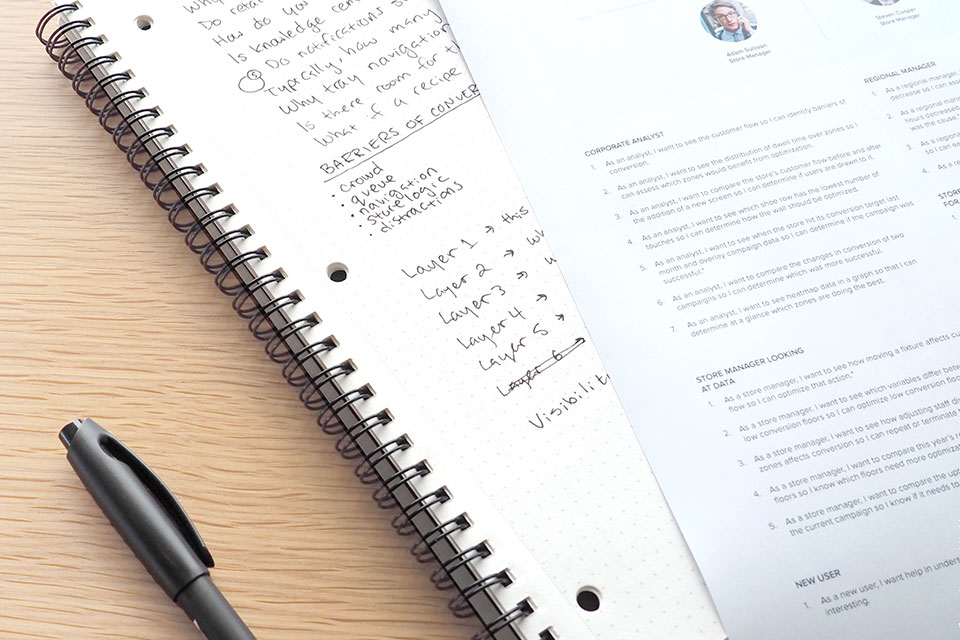 Why
Do retai
How do you
Is knowledge cen
Do notifications
Typically, how many
Why tray navigation
Is there room for t
What if a recipe
BARRIERS OF CONVER
• crowd
• queue
• navigation
• store logic
• distractions
Layer 1 → this
Layer 2 → wh
Layer 3 → w
Layer 4 →
Layer 5 →
Layer 6
Visibilit
Adam Sullivan
Store Manager
Steven Cooper
Store Manager
CORPORATE ANALYST
1. As an analyst, I want to see the customer flow so I can identify barriers of
conversion.
2. As an analyst, I want to see the distribution of dwell time over zones so I
can assess which zones would benefit from optimization.
3. As an analyst, I want to compare the store's customer flow before and after
the addition of a new screen so I can determine if users are drawn to it.
4. As an analyst, I want to see which shoe row has the lowest number of
touches so I can determine how the wall should be optimized.
5. As an analyst, I want to see when the store hit its conversion target last
month and overlay campaign data so I can determine if the campaign was
successful."
6. As an analyst, I want to compare the changes in conversion of two
campaigns so I can determine which was more successful.
7. As an analyst, I want to see heatmap data in a graph so that I can
determine at a glance which zones are doing the best.
STORE MANAGER LOOKING
AT DATA
1. As a store manager, I want to see how moving a fixture affects cu
flow so I can optimize that action."
2. As a store manager, I want to see which variables differ betwe
low conversion floors so I can optimize low conversion floor
3. As a store manager, I want to see how adjusting staff di
zones affects conversion so I can repeat or terminate t
4. As a store manager, I want to compare this year's r
floors so I know which floors need more optimizat
5. As a store manager, I want to compare the upt
the current campaign so I know if it needs to
NEW USER
1. As a new user, I want help in unders
interesting.
REGIONAL MANAGER
1. As a regional manager,
decrease so I can assess
2. As a regional mana
hours decreased
was the cause
3. As a regiona
so I can ea
4. As a re
STO
FOR
1.